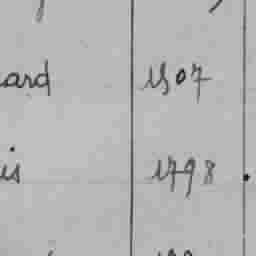 ard 1507
is 1798